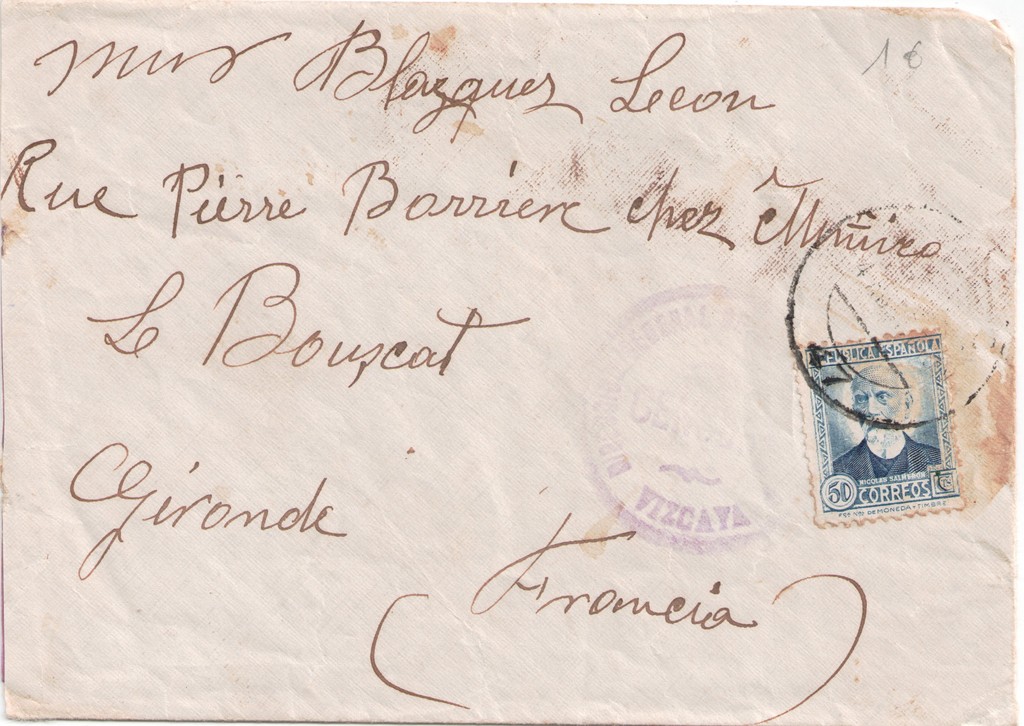 Blazquez Leeon
16
Rue Pierre Barriere chez Muñiro
Le Bouscat
Gironde
Francia
REPUBLICA ESPAÑOLA
NICOLAS SALMERON
50 CORREOS
FCA. NAL. DE MONEDA Y TIMBRE
VIZCAYA